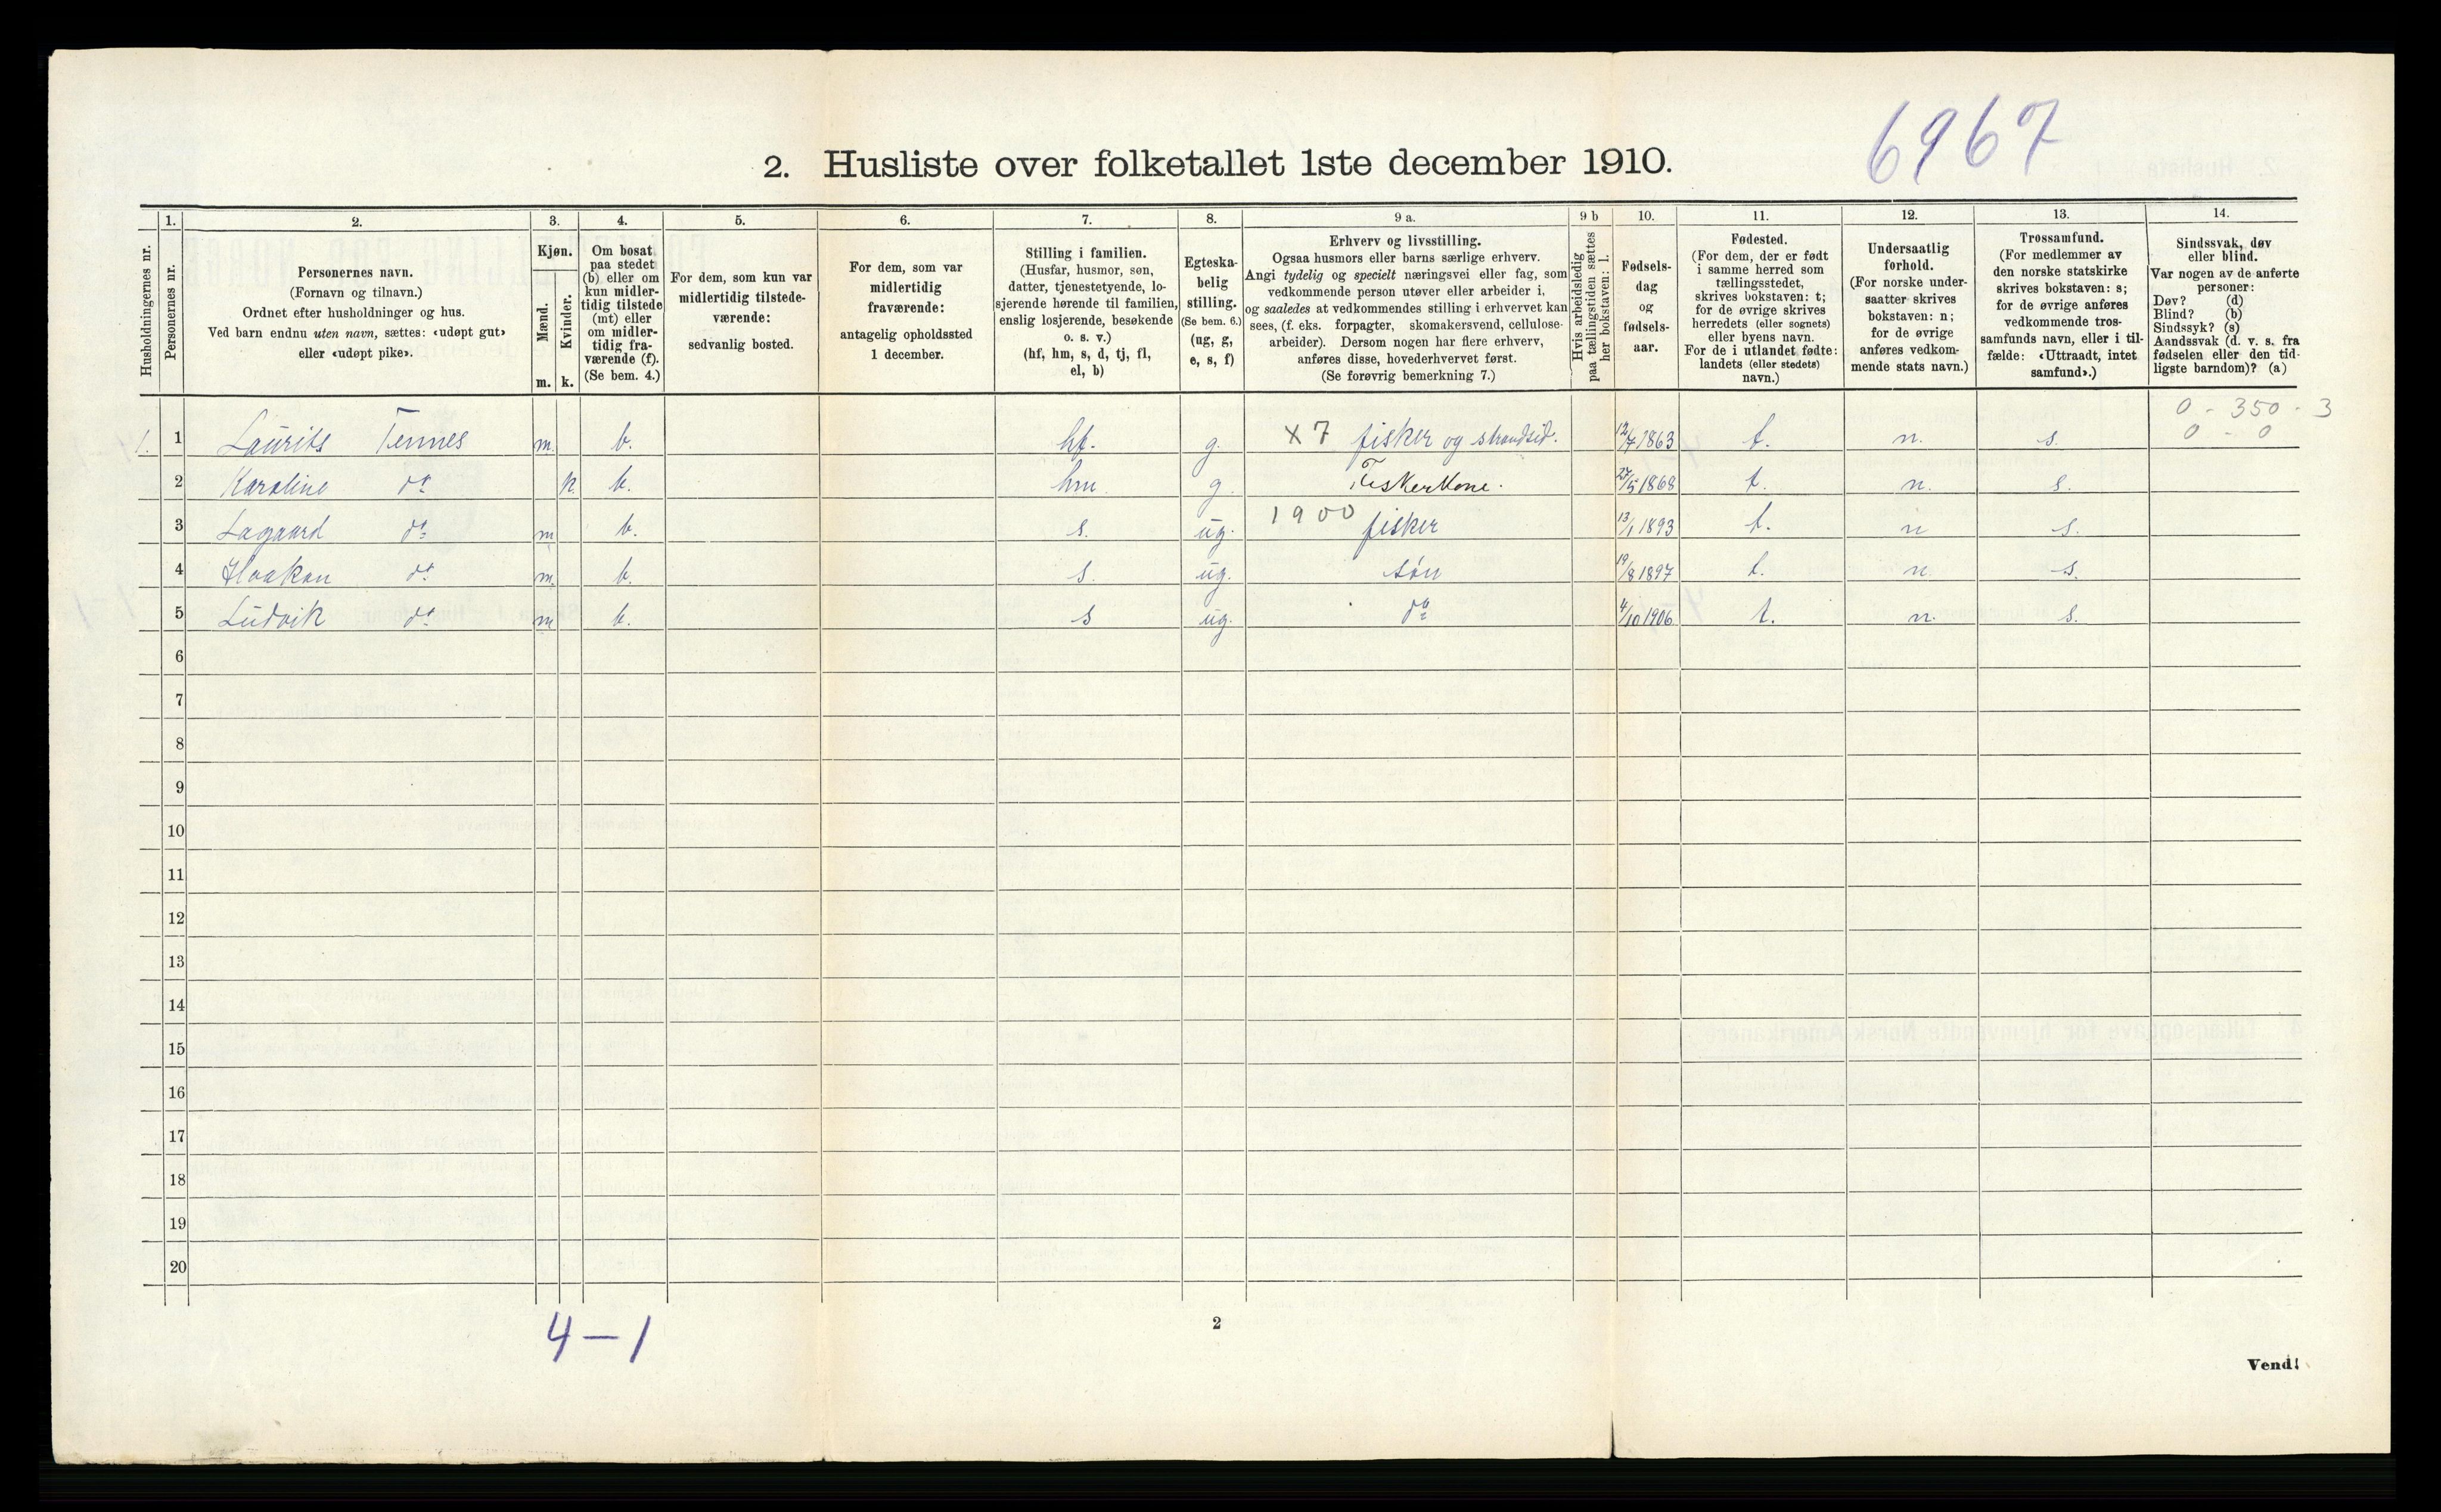 6967
2. Husliste over folketallet 1ste december 1910.
Husholdningernes nr.
1.
Personernes nr.
2.
Personernes navn.
(Fornavn og tilnavn.)
Ordnet efter husholdninger og hus.
Ved barn endnu uten navn, sættes: «udøpt gut»
eller «udøpt pike».
3.
Kjøn.
Mænd.
Kvinder.
m. k.
4.
Om bosat
paa stedet
(b) eller om
kun midler-
tidig tilstede
(mt) eller
om midler-
tidig fra-
værende (f).
(Se bem. 4.)
5.
For dem, som kun var
midlertidig tilstede-
værende:
sedvanlig bosted.
6.
For dem, som var
midlertidig
fraværende:
antagelig opholdssted
1 december.
7.
Stilling i familien.
(Husfar, husmor, søn,
datter, tjenestetyende, lo-
sjerende hørende til familien,
enslig losjerende, besøkende
o. s. v.)
(hf, hm, s, d, tj, fl,
el, b)
8.
Egteska-
belig
stilling.
(Se bem. 6.)
(ug, g,
e, s, f)
9 a.
Erhverv og livsstilling.
Ogsaa husmors eller barns særlige erhverv.
Angi tydelig og specielt næringsvei eller fag, som
vedkommende person utøver eller arbeider i,
og saaledes at vedkommendes stilling i erhvervet kan
sees, (f. eks. forpagter, skomakersvend, cellulose-
arbeider). Dersom nogen har flere erhverv,
anføres disse, hovederhvervet først.
(Se forøvrig bemerkning 7.)
9 b
Hvis arbeidsledig
paa tællingstiden sættes
her bokstaven: l.
10.
Fødsels-
dag
og
fødsels-
aar.
11.
Fødested.
(For dem, der er født
i samme herred som
tællingsstedet,
skrives bokstaven: t;
for de øvrige skrives
herredets (eller sognets)
eller byens navn.
For de i utlandet fødte:
landets (eller stedets)
navn.)
12.
Undersaatlig
forhold.
(For norske under-
saatter skrives
bokstaven: n;
for de øvrige
anføres vedkom-
mende stats navn.)
13.
Trossamfund.
(For medlemmer av
den norske statskirke
skrives bokstaven: s;
for de øvrige anføres
vedkommende tros-
samfunds navn, eller i til-
fælde: «Uttraadt, intet
samfund».)
14.
Sindssvak, døv
eller blind.
Var nogen av de anførte
personer:
Døv? (d)
Blind? (b)
Sindssyk? (s)
Aandssvak (d. v. s. fra
fødselen eller den tid-
ligste barndom)? (a)
0 - 350 - 3
1. 1 Laurits Tennes m. b. hf. g. X7 fisker og strandsid. 12/7 1863 t. n. s. 0 - 0
2 Karoline do k. b. hm. g. Fiskerkone. 27/5 1868 t. n. s.
3 Lagaard do m b. s. ug. 1900 fisker 13/1 1893 t. n s.
4 Haakon do m. b. s. ug. søn 19/8 1897 t. n. s.
5 Ludvik do m b. s ug. do 4/10 1906 t. n. s.
6
7
8
9
10
11
12
13
14
15
16
17
18
19
20
4 — 1
2
Vend!